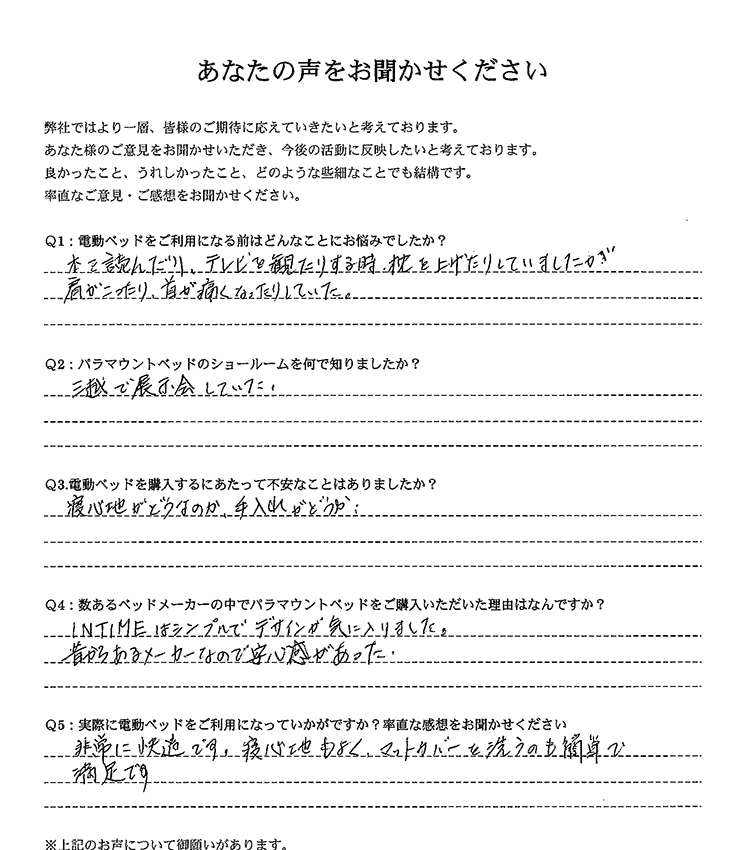 あなたの声をお聞かせください
弊社ではより一層、皆様のご期待に応えていきたいと考えております。
あなた様のご意見をお聞かせいただき、今後の活動に反映したいと考えております。
良かったこと、うれしかったこと、どのような些細なことでも結構です。
率直なご意見・ご感想をお聞かせください。
Q1：電動ベッドをご利用になる前はどんなことにお悩みでしたか？
本を読んだり、テレビを観たりする時、枕を上げたりしていましたが
肩がこったり、首が痛くなったりしていた。
Q2：パラマウントベッドのショールームを何で知りましたか？
三越で展示会していた。
Q3.電動ベッドを購入するにあたって不安なことはありましたか？
寝心地がどうなのか、手入れがどうか。
Q4：数あるベッドメーカーの中でパラマウントベッドをご購入いただいた理由はなんですか？
INTIMEはシンプルでデザインが気に入りました。
昔からあるメーカーなので安心感があった。
Q5：実際に電動ベッドをご利用になっていかがですか？率直な感想をお聞かせください
非常に快適です。寝心地もよく、マットカバーを洗うのも簡単で
満足です
※上記のお声について御願いがあります。